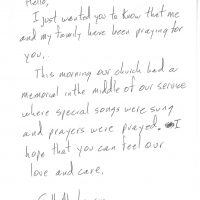 Hello,
I just wanted you to know that me
and my family have been praying for
you.
This morning our church had a
memorial in the middle of our service
where special songs were sung
and prayers were prayed. I
hope that you can feel our
love and care.